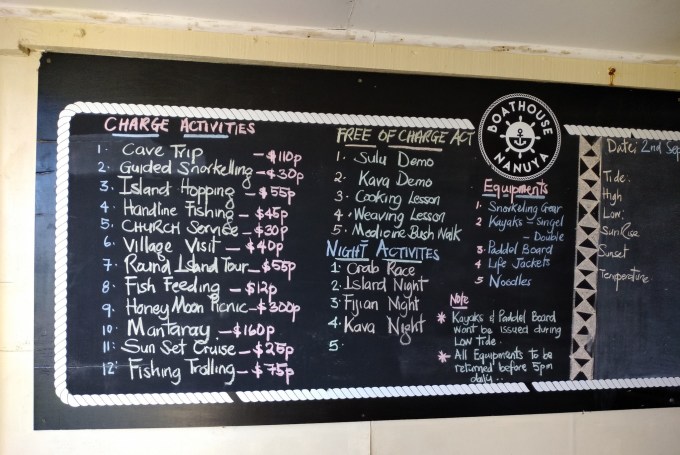 CHARGE ACTIVITIES
1. Cave Trip - $110p
2. Guided Snorkelling - $30p
3. Island Hopping - $55p
4. Handline Fishing - $45p
5. CHURCH Service - $30p
6. Village Visit - $40p
7. Round Island Tour - $55p
8. Fish Feeding - $12p
9. Honey Moon Picnic - $300p
10. Mantaray - $160p
11. Sun Set Cruise - $25p
12. Fishing Trolling - $75p
FREE OF CHARGE ACT
1. Sulu Demo
2. Kava Demo
3. Cooking Lesson
4. Weaving Lesson
5. Medicine Bush Walk
NIGHT ACTIVITES
1. Crab Race
2. Island Night
3. Fijian Night
4. Kava Night
5.
BOATHOUSE
NANUYA
Equipments
1. Snorkeling Gear
2 Kayaks - Singel
- Double
3. Paddel Board
4 Life Jackets
5 Noodles
Note
* Kayaks & Paddel Board
wont be issued during
Low tide.
* All Equipments to be
returned before 5pm
daily..
Date: 2nd Sep
Tide:
High
Low:
Sun Rise
Sunset
Temperature